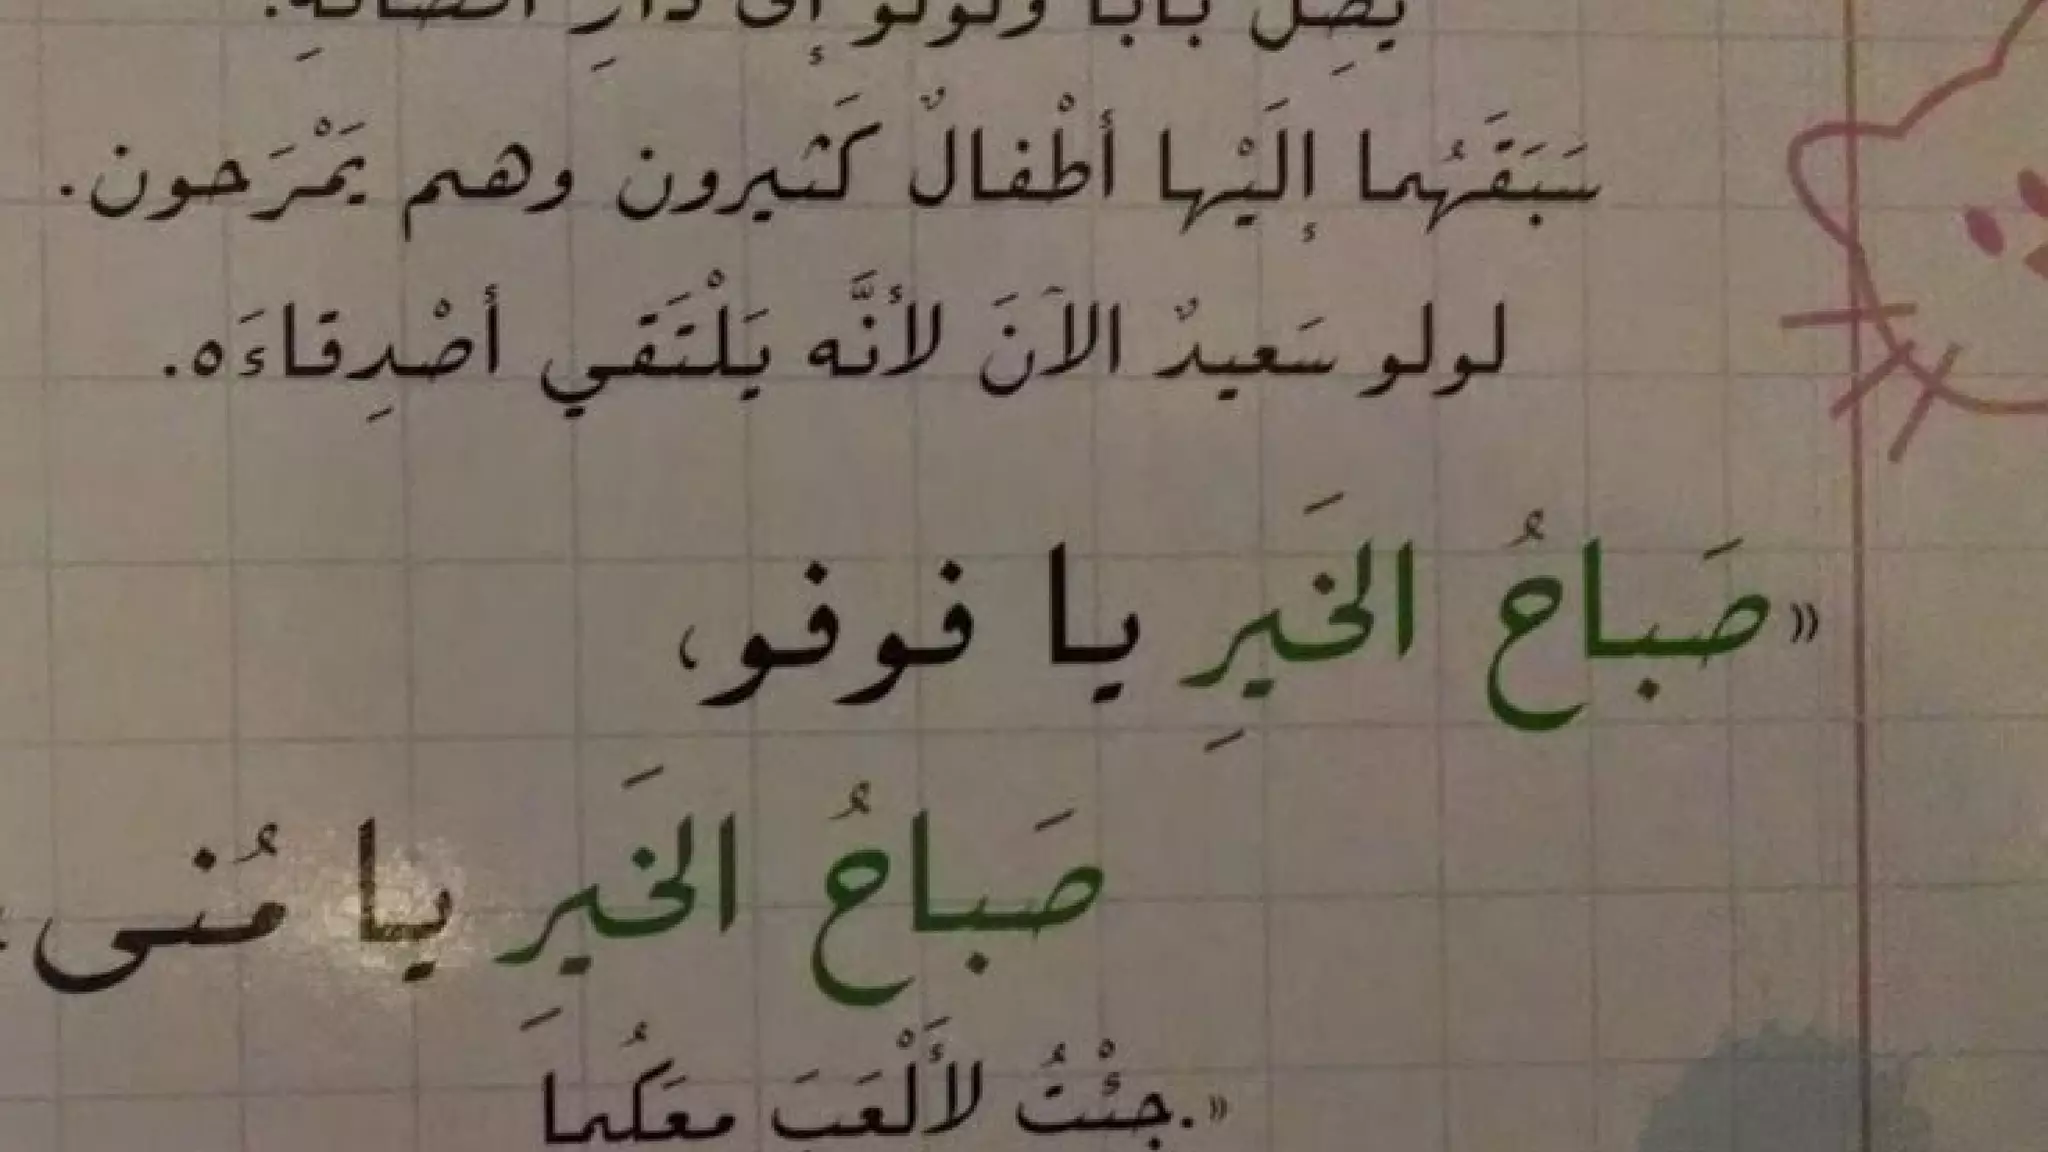 يَصِل بابا ولولو إلى دارِ الحَضانَةِ.
سَبَقَهُما إلَيْها أطْفالٌ كَثيرون وهم يَمْرَحون.
لولو سَعيدٌ الآنَ لأنَّه يَلْتَقي أصْدِقاءَه.
«صَباحُ الخَيرِ يا فوفو،
صَباحُ الخَيرِ يا مُنى.
جِئْتُ لأَلْعَبَ معَكُما.»